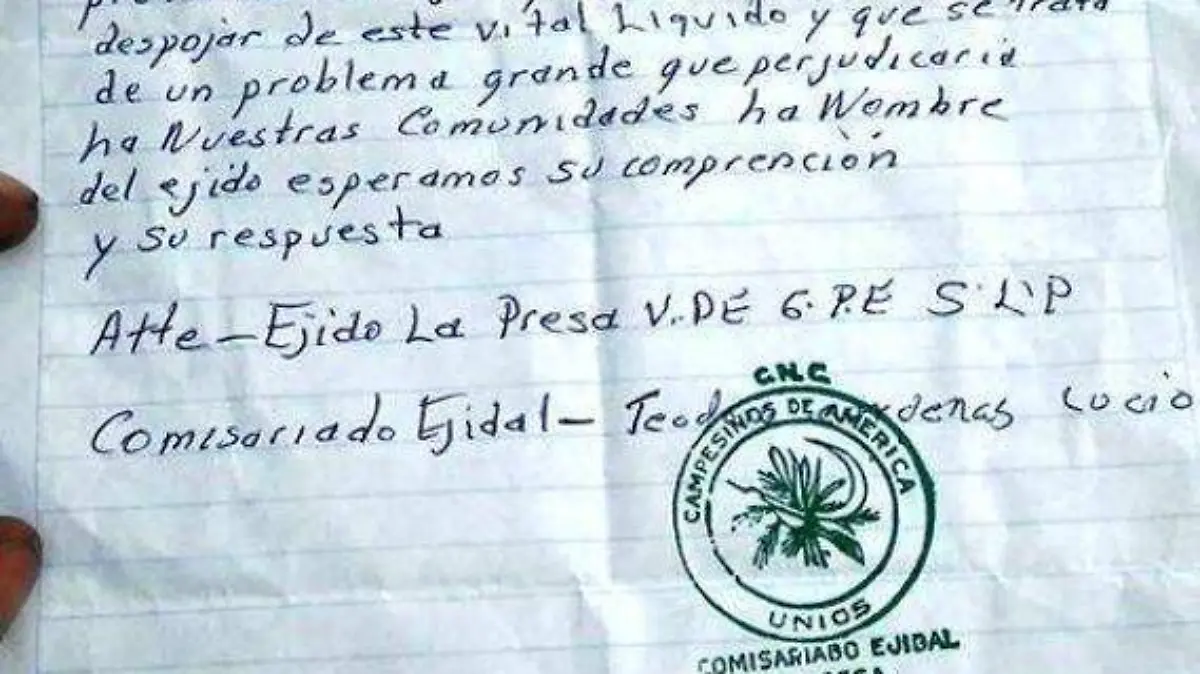 despojar de este vital Liquido y que se trata
de un problema grande que perjudicaria
ha Nuestras Comunidades ha Nombre
del ejido esperamos su comprención
y su respuesta
Atte-Ejido La Presa V. DE G. P.E S.L.P
Comisariado Ejidal- Lucio
C.N.C
CAMPESINOS DE AMERICA
UNIOS
COMISARIADO EJIDAL